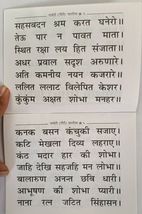 सहसवदन श्रम करत घनेरो॥
तेऊ पार न पावत माता।
स्थित रक्षा लय हित संजाता॥
अधर प्रवाल सदृश अरुणारे।
अति कमनीय नयन कजरारे॥
ललित ललाट विलेपित केशर।
कुंकुंम अक्षत शोभा मनहर॥
कनक बसन कंचुकी सजाए।
कटि मेखला दिव्य लहराए॥
कंठ मदार हार की शोभा।
जाहि देखि सहजहि मन लोभा॥
बालारुण अनन्त छवि धारी।
आभूषण की शोभा प्यारी॥
नाना रत्न जटित सिंहासन।